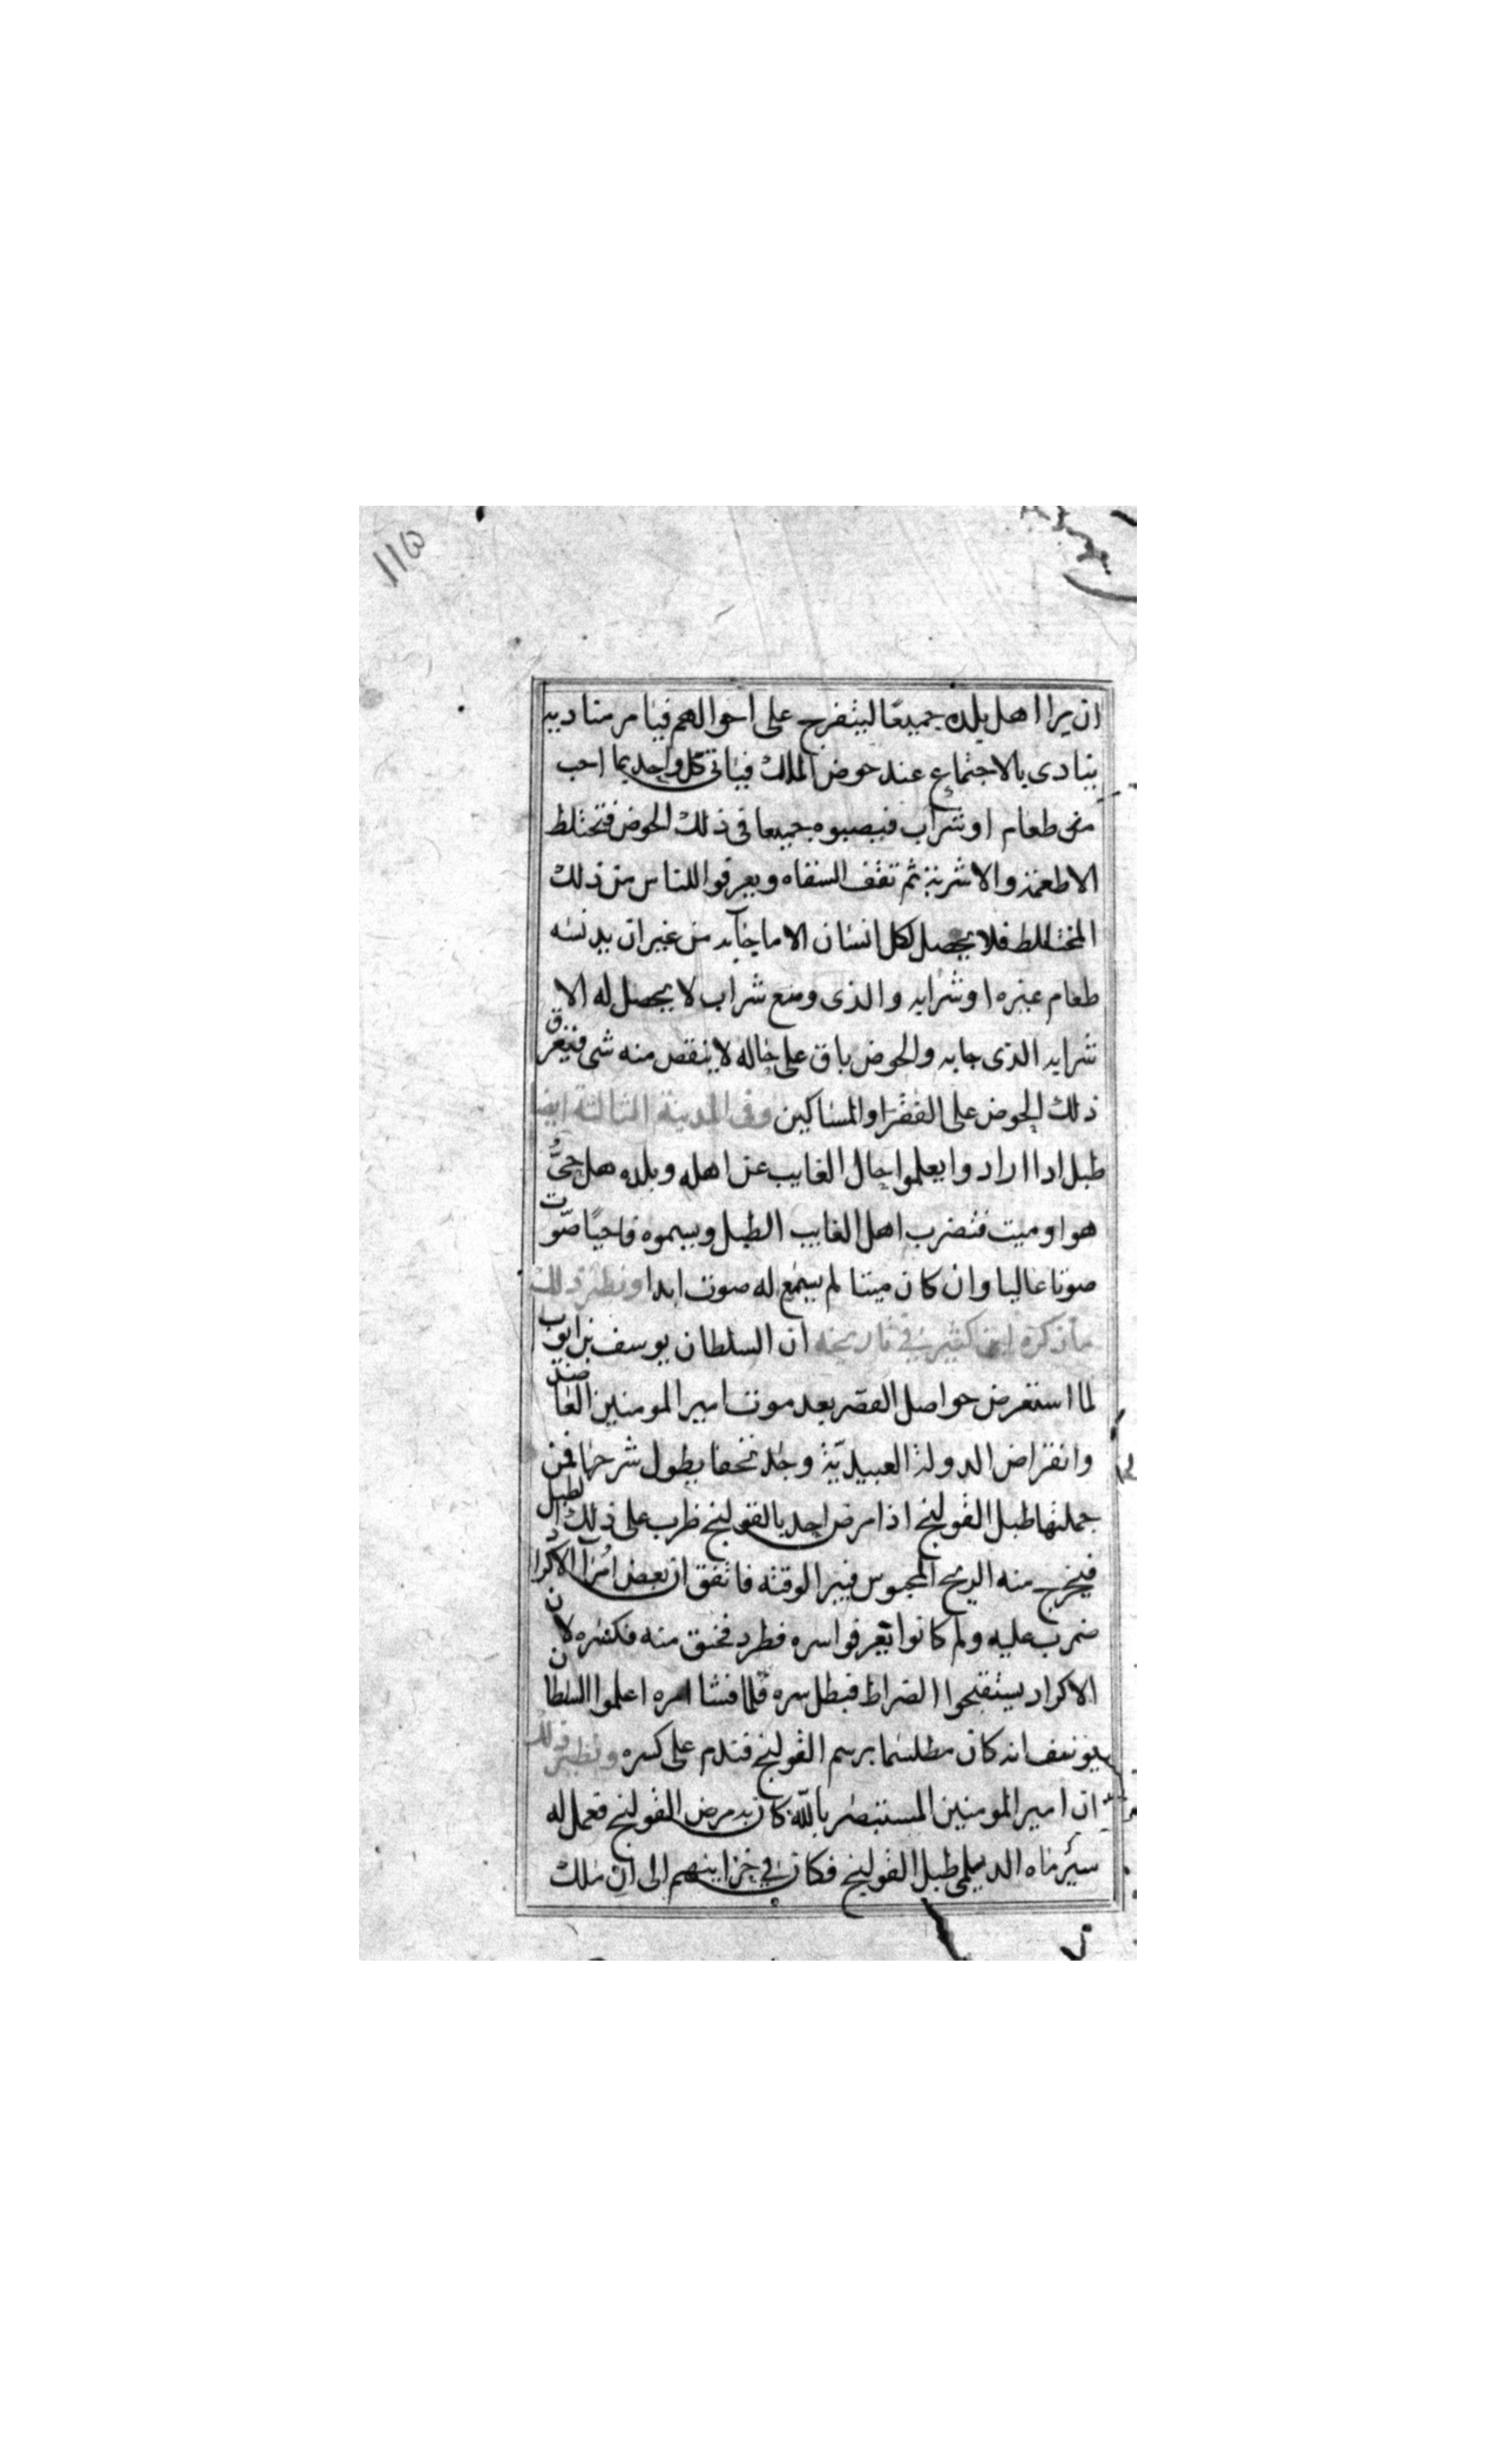 ١١٥
ان يرا اهل بلده جميعا ليتفرج على احوالهم فيامر مناديه
ينادى بالاجتماع عند حوض الملك فياتى كل واحد بما احب
من طعام او شراب فيصبوه جميعا فى ذلك الحوض فتختلط
الاطعمة والاشربة ثم تقف السقاه ويعرفوا للناس من ذلك
المختلط فلا يحصل لكل انسان الا ما جآبه من غير ان يدنسه
طعام غيره او شرابه والذى وضع شراب لا يحصل له الا
شرابه الذى جابه والحوض باق على حاله لا ينقص منه شى فيغرق
ذلك الحوض على الفقرا والمساكين وفى المدينة الثالثة ايضا
طبل اذا ارادوا يعلموا حال الغايب عن اهله وبلده هل حىٌّ
هو او ميت فتضرب اهل الغايب الطبل ويسموه فاحيًا صوّت
صوتا عاليا وان كان ميتا لم يسمع له صوت ابدا ونظير ذلك
ما ذكره ابن كثير فى تاريخه ان السلطان يوسف بن ايوب
لما استعرض حواصل القصر بعد موت امير المومنين العاضد
وانقراض الدولة العبيديّة وجد تحفا يطول شرحها فمن
جملتها طبل القولنج اذا مرض احد بالقولنج ظرب على ذلك الطبل
فيخرج منه الريح المحبوس فيبرا لوقته فاتفق ان بعض امرآ الاكراد
ضرب عليه ولم كانوا يعرفوا سره فطرد فحنق منه فكسره لان
الاكراد يستقبحوا الضراط فبطل سره فلما فشا امره اعلموا السلطان
يوسف انه كان مطلسما برسم القولنج فندم على كسره ونظير ذلك
ان امير المومنين المستنصر بالله كان به مرض القولنج فعمل له
سيرماه الديلمى طبل القولنج فكان فى خزاينهم الى ان ملك